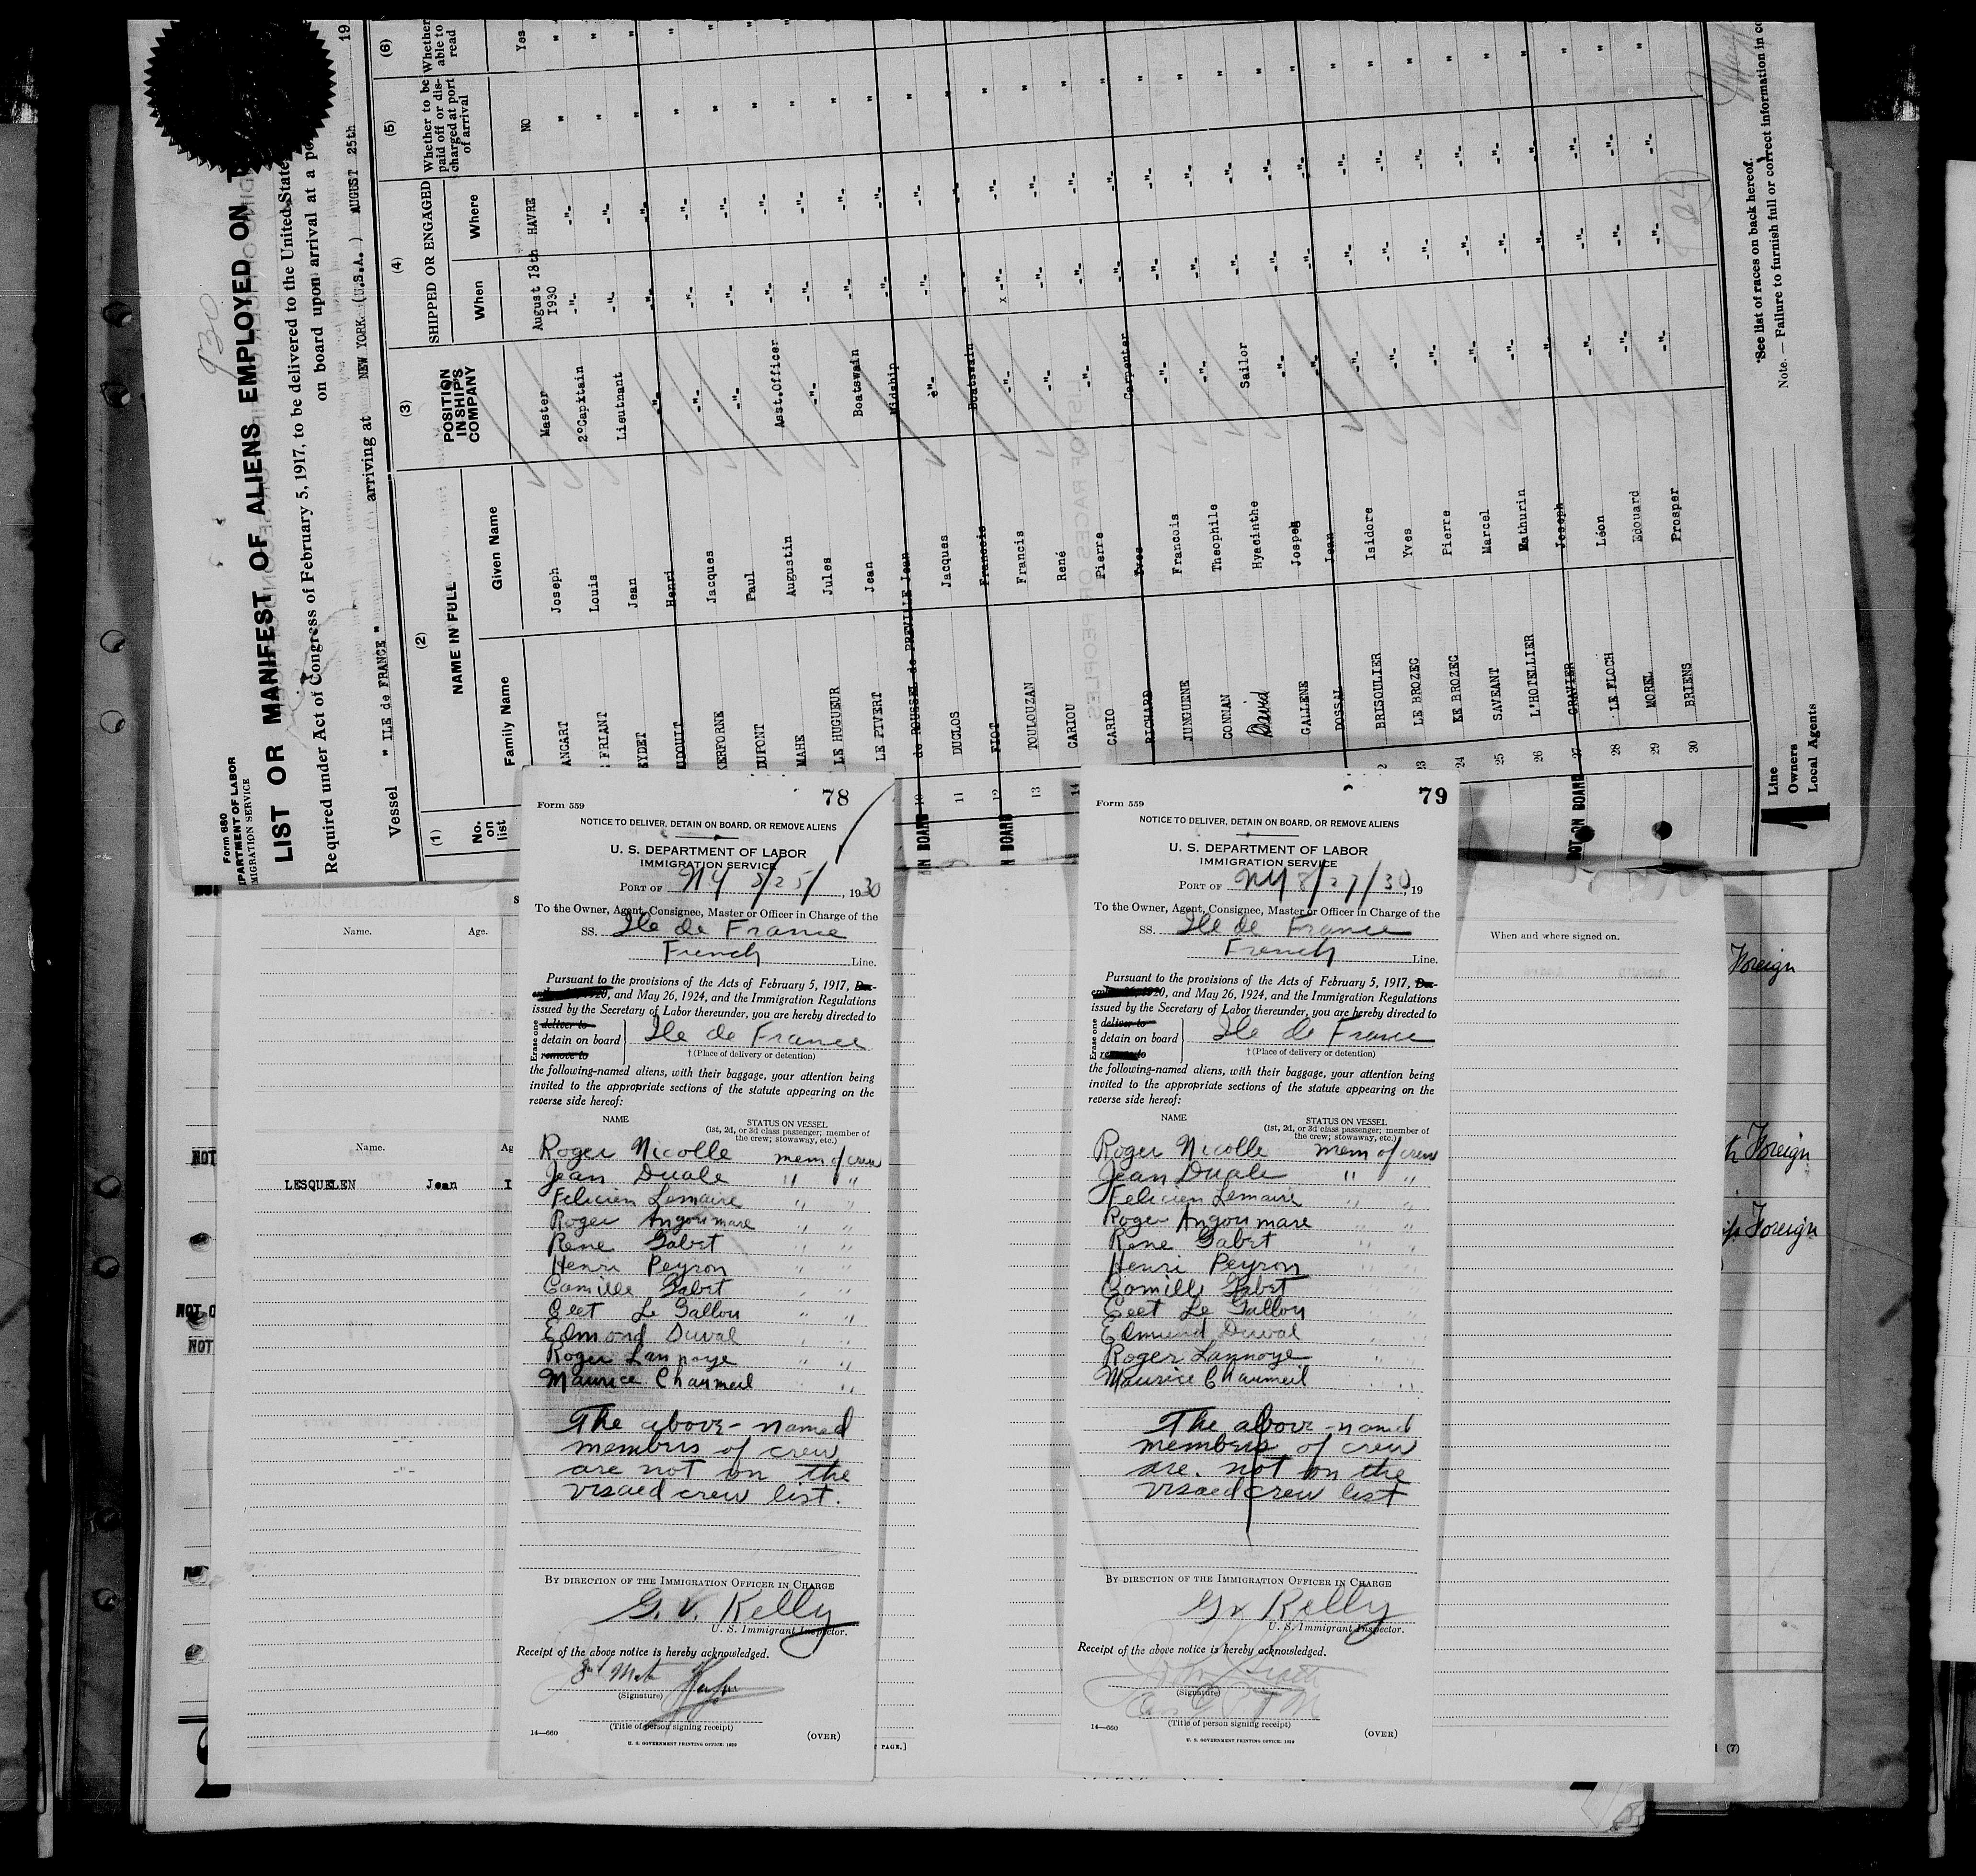 930
Form 680
LIST OR MANIFEST OF ALIENS EMPLOYED ON
IMMIGRATION SERVICE
Required under Act of Congress of February 5, 1917, to be delivered to the United State
on board upon arrival at a
Vessel " ILE de FRANCE " arriving at NEW YORK (U.S.A.) AUGUST 25th 19
(1) (2) (3) (4) (5) (6)
No. on list
NAME IN FULL
Family Name Given Name
POSITION IN SHIP'S COMPANY
SHIPPED OR ENGAGED
When Where
Whether to be paid off or discharged at port of arrival
Whether able to read
ANGART Joseph Master August 18th 1930 HAVRE NO Yes
FRIANT Louis 2°Capitain -"- -"- " "
EYDET Jean Lieutnant -"- -"- " "
Henri -"- -"- -"-
KERFORNE Jacques -"- -"- -"- " "
DUPONT Paul -"- -"- -"- " "
MAHE Augustin Asst.Officer -"- -"- " "
LE HUGUEUR Jules -"- -"- -"- " "
LE PIVERT Jean Boatswain -"- -"- " "
10 de ROUSSEL de PREVILLE Jean Midship -"- -"- " "
11 DUCLOS Jacques -"- -"- -"- " "
12 FIOT Francois Boatswain - -"- " "
13 TOULOUZAN Francis -"- x -"- -"- " "
14 CARIOU René -"- -"- -"- " "
CARIO Pierre -"- -"- -"- " "
RICHARD Yves Carpenter -"- -"- " "
JUNGUENE Francois -"- -"- -"- " "
CONNAN Theophile -"- -"- -"- " "
David Hyacinthe Sailor -"- -"- " "
GALLENE Jospeh -"- -"- -"- " "
DOSSAL Jean -"- -"- -"- " "
BRISOULIER Isidore -"- -"- -"- " "
23 LE BROZEC Yves -"- -"- -"- " "
24 KE BROZEC Pierre -"- -"- -"- " "
25 SAVEANT Marcel -"- -"- -"- " "
26 L'HOTELLIER Mathurin -"- -"- -"- " "
27 GRAVIER Joseph -"- -"- -"- " "
28 LE FLOCH Léon -"- -"- -"- " "
29 MOREL Edouard -"- -"- -"- " "
30 BRIENS Prosper -"- -"- -"- " "
NOT ON BOARD
Line
Owners
Local Agents
*See list of races on back hereof.
Note. — Failure to furnish full or correct information in
78
Form 559
NOTICE TO DELIVER, DETAIN ON BOARD, OR REMOVE ALIENS
U. S. DEPARTMENT OF LABOR
IMMIGRATION SERVICE
PORT OF NY 8/25/, 1930
To the Owner, Agent, Consignee, Master or Officer in Charge of the
SS. Ile de France
French Line.
Pursuant to the provisions of the Acts of February 5, 1917, Dec-
ember 26, 1920, and May 26, 1924, and the Immigration Regulations
issued by the Secretary of Labor thereunder, you are hereby directed to
Erase one
deliver to
detain on board Ile de France
remove to † (Place of delivery or detention)
the following-named aliens, with their baggage, your attention being
invited to the appropriate sections of the statute appearing on the
reverse side hereof:
NAME STATUS ON VESSEL
(1st, 2d, or 3d class passenger; member of
the crew; stowaway, etc.)
Roger Nicolle mem of crew
Jean Duale " "
Felicien Lemaire " "
Roger Angoumare " "
Rene Gabet " "
Henri Peyron " "
Camille Gabet " "
Ceet Le Gallou " "
Edmond Duval " "
Roger Lannoye " "
Maurice Chaumeil " "
The above-named
members of crew
are not on the
visaed crew list.
BY DIRECTION OF THE IMMIGRATION OFFICER IN CHARGE
G. V. Kelly
U. S. Immigrant Inspector.
Receipt of the above notice is hereby acknowledged.
(Signature)
(Title of person signing receipt)
14—660 (OVER)
U. S. GOVERNMENT PRINTING OFFICE: 1929
79
Form 559
NOTICE TO DELIVER, DETAIN ON BOARD, OR REMOVE ALIENS
U. S. DEPARTMENT OF LABOR
IMMIGRATION SERVICE
PORT OF NY 8/27/30, 19
To the Owner, Agent, Consignee, Master or Officer in Charge of the
SS. Ile de France
French Line.
Pursuant to the provisions of the Acts of February 5, 1917, Dec-
ember 26, 1920, and May 26, 1924, and the Immigration Regulations
issued by the Secretary of Labor thereunder, you are hereby directed to
Erase one
deliver to
detain on board Ile de France
remove to † (Place of delivery or detention)
the following-named aliens, with their baggage, your attention being
invited to the appropriate sections of the statute appearing on the
reverse side hereof:
NAME STATUS ON VESSEL
(1st, 2d, or 3d class passenger; member of
the crew; stowaway, etc.)
Roger Nicolle mem of crew
Jean Duale " "
Felicien Lemaire " "
Roger Angoumare "
Rene Gabet " "
Henri Peyron "
Camille Gabet
Ceet Le Gallou
Edmund Duval
Roger Lannoye "
Maurice Chaumeil "
The above-named
members of crew
are not on the
visaed crew list
BY DIRECTION OF THE IMMIGRATION OFFICER IN CHARGE
GV Kelly
U. S. Immigrant Inspector.
Receipt of the above notice is hereby acknowledged.
(Signature)
(Title of person signing receipt)
14—660 (OVER)
U. S. GOVERNMENT PRINTING OFFICE: 1929
Name. Age.
Name.
LESQUELEN Jean
-"-
When and where signed on.
Foreign
Foreign
Foreign
NOT
NOT
PAGE.]
(7)